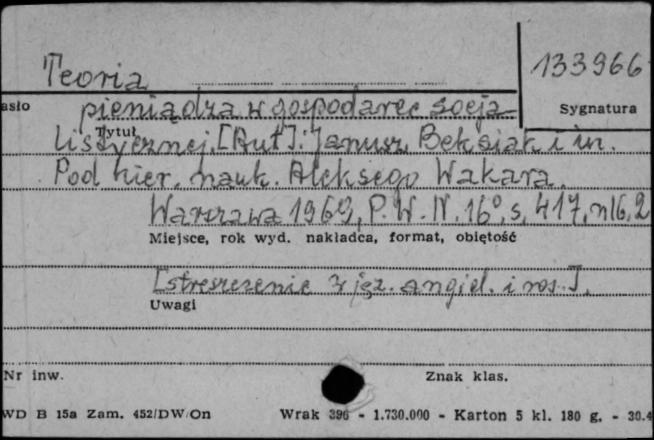 Teoria
133966
asło
pieniądza w gospodarce socja-
Sygnatura
Tytuł
listycznej. [Aut]: Janusz Beksiak i in.
Pod kier. nauk. Aleksego Wakara.
Warszawa 1969, P.W.N. 16°, s. 417, nlb, 2
Miejsce, rok wyd. nakładca, format, objętość
[streszczenie w jęz. angiel. i ros.].
Uwagi
Nr inw.
Znak klas.
WD B 15a Zam. 452/DW/On Wrak 396 - 1.730.000 - Karton 5 kl. 180 g. - 30.4